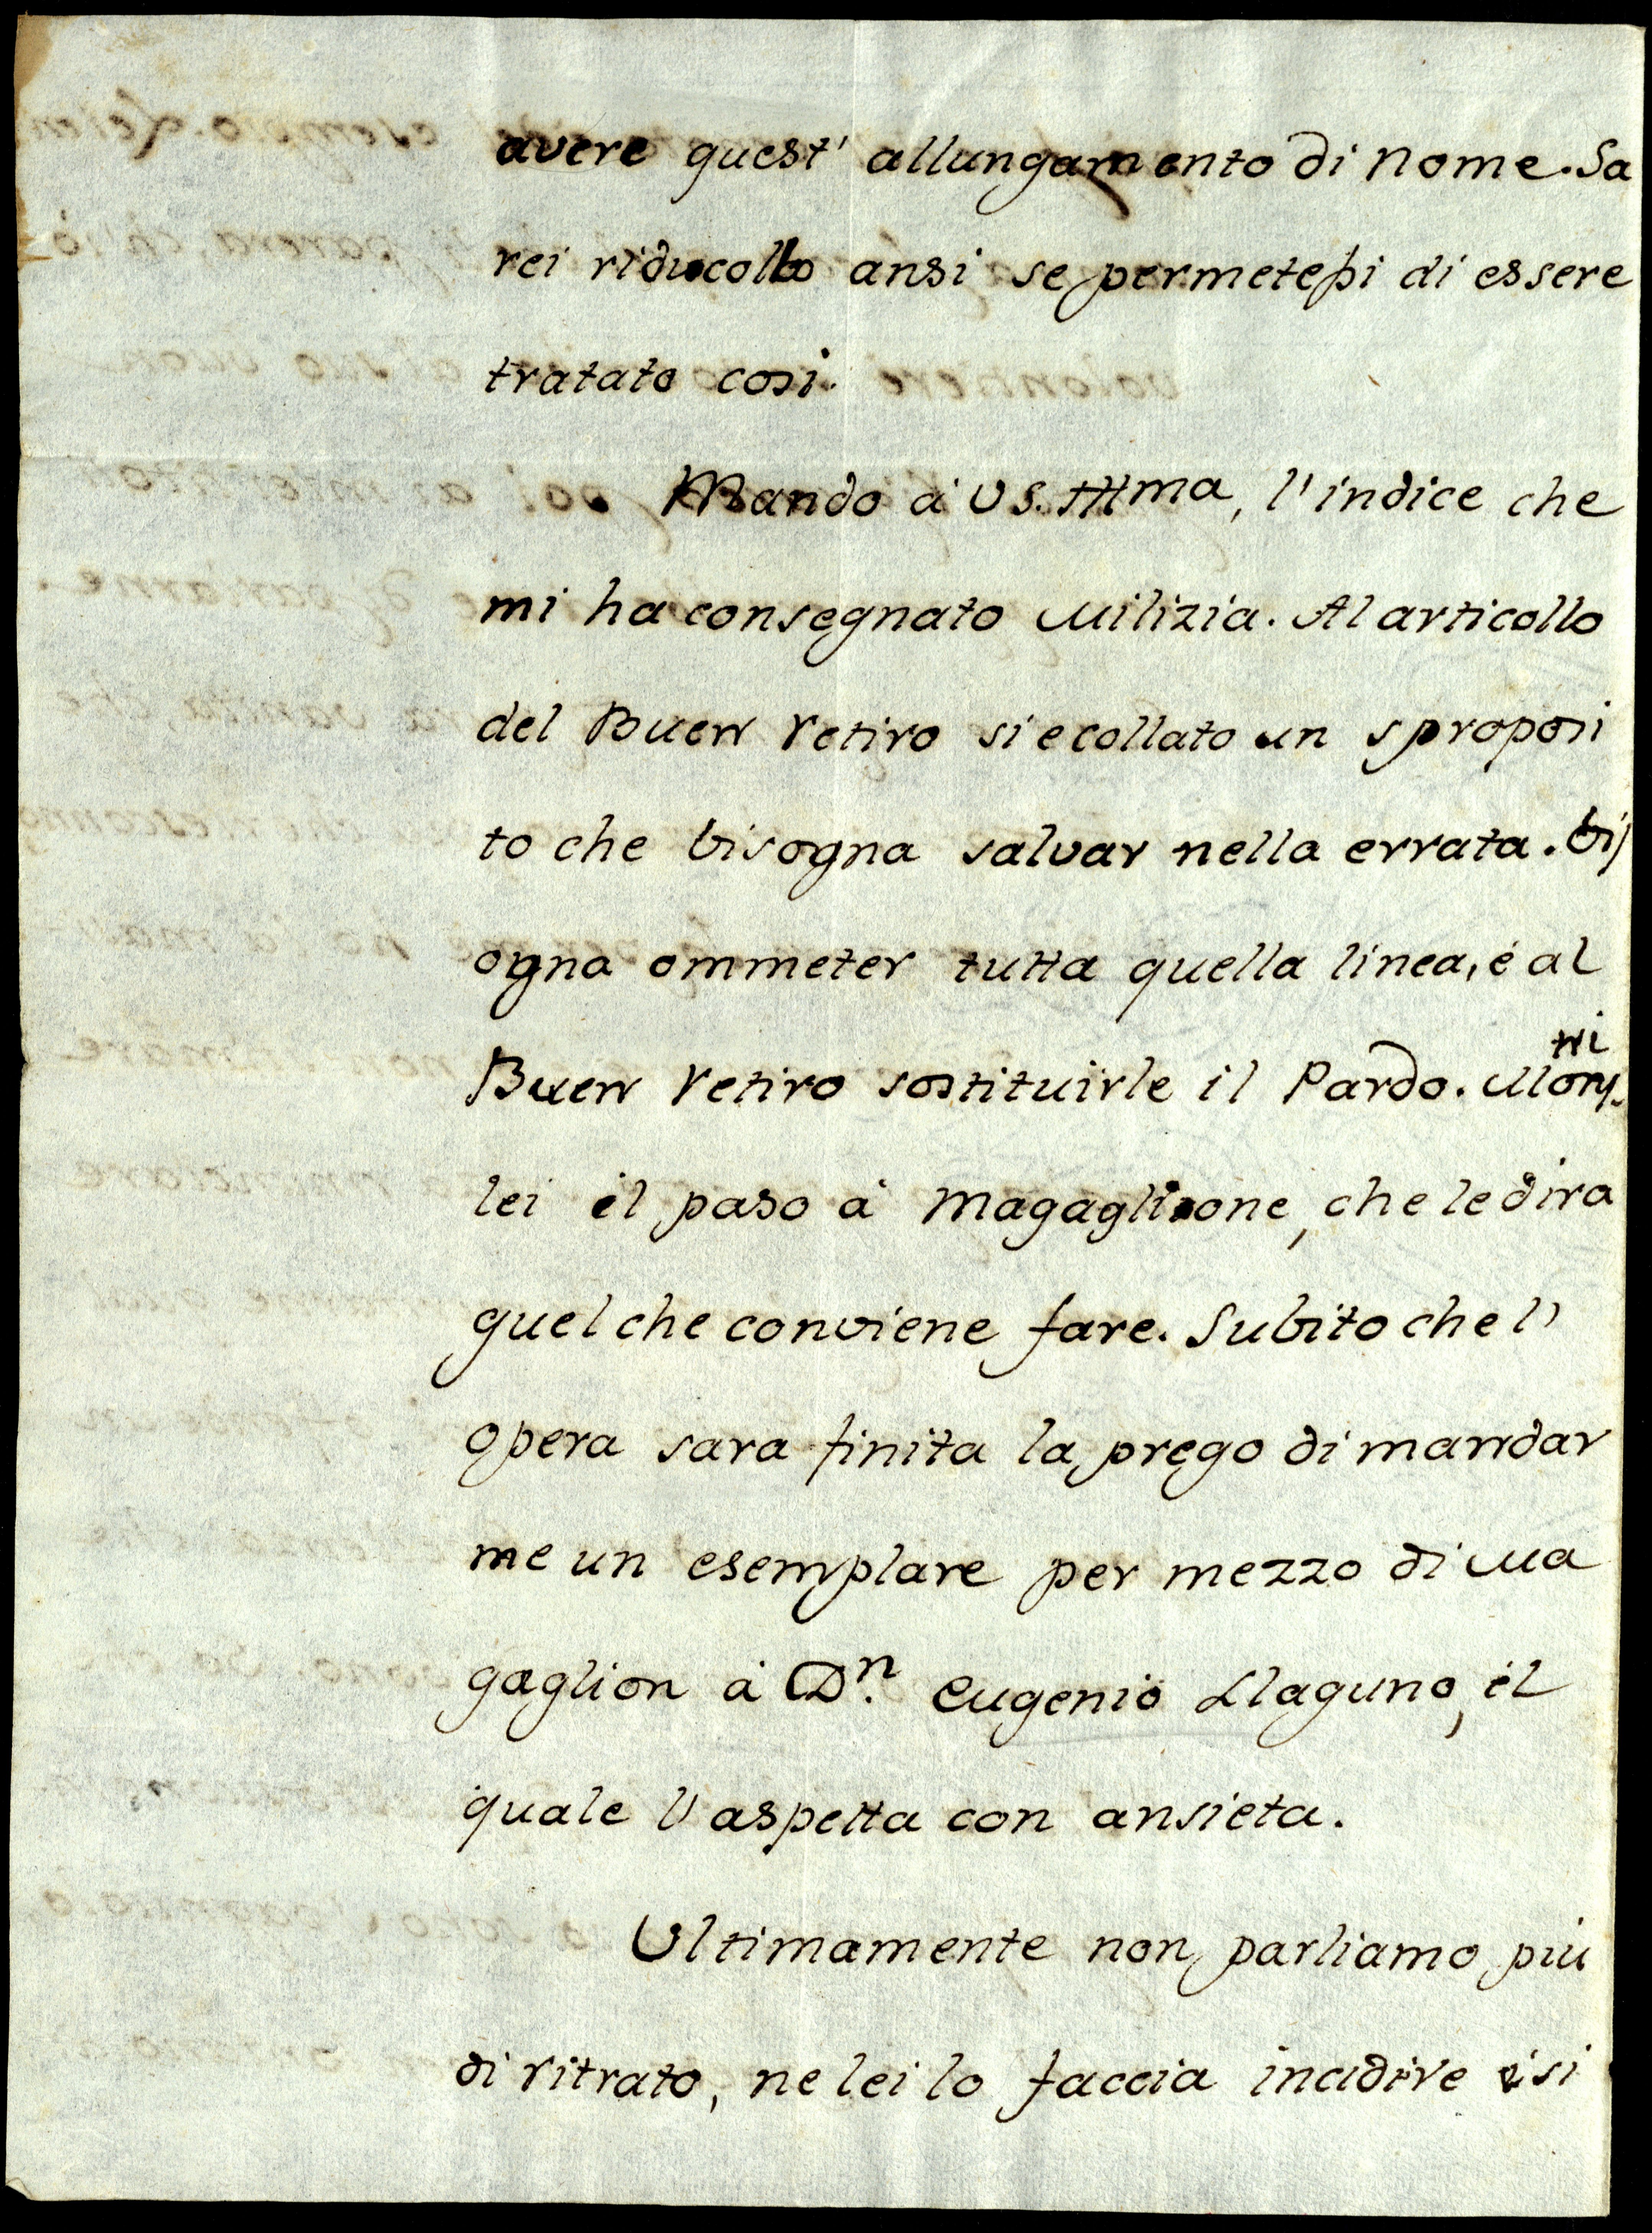 avere quest' allungamento di nome. Sa
rei riducollo ansi se permetessi di essere
tratato cosi.
Mando à VS. Illma, l'indice che
mi ha consegnato Milizia. Al articollo
del Buen Retiro si e collato un sproposi
to che bisogna salvar nella errata. bis
ogna ommeter tutta quella linea, é al
Buen Retiro sostituirle il Pardo. Mons
tri
lei il paso à Magaglione, che le dira
quel che conviene fare. Subito che l'
opera sara finita la prego di mandar
me un esemplare per mezzo di Ma
gaglion à Dn. Eugenio Llaguno, il
quale l'aspetta con ansieta.
Ultimamente non parliamo piu
di ritrato, ne lei lo faccia incidire é si